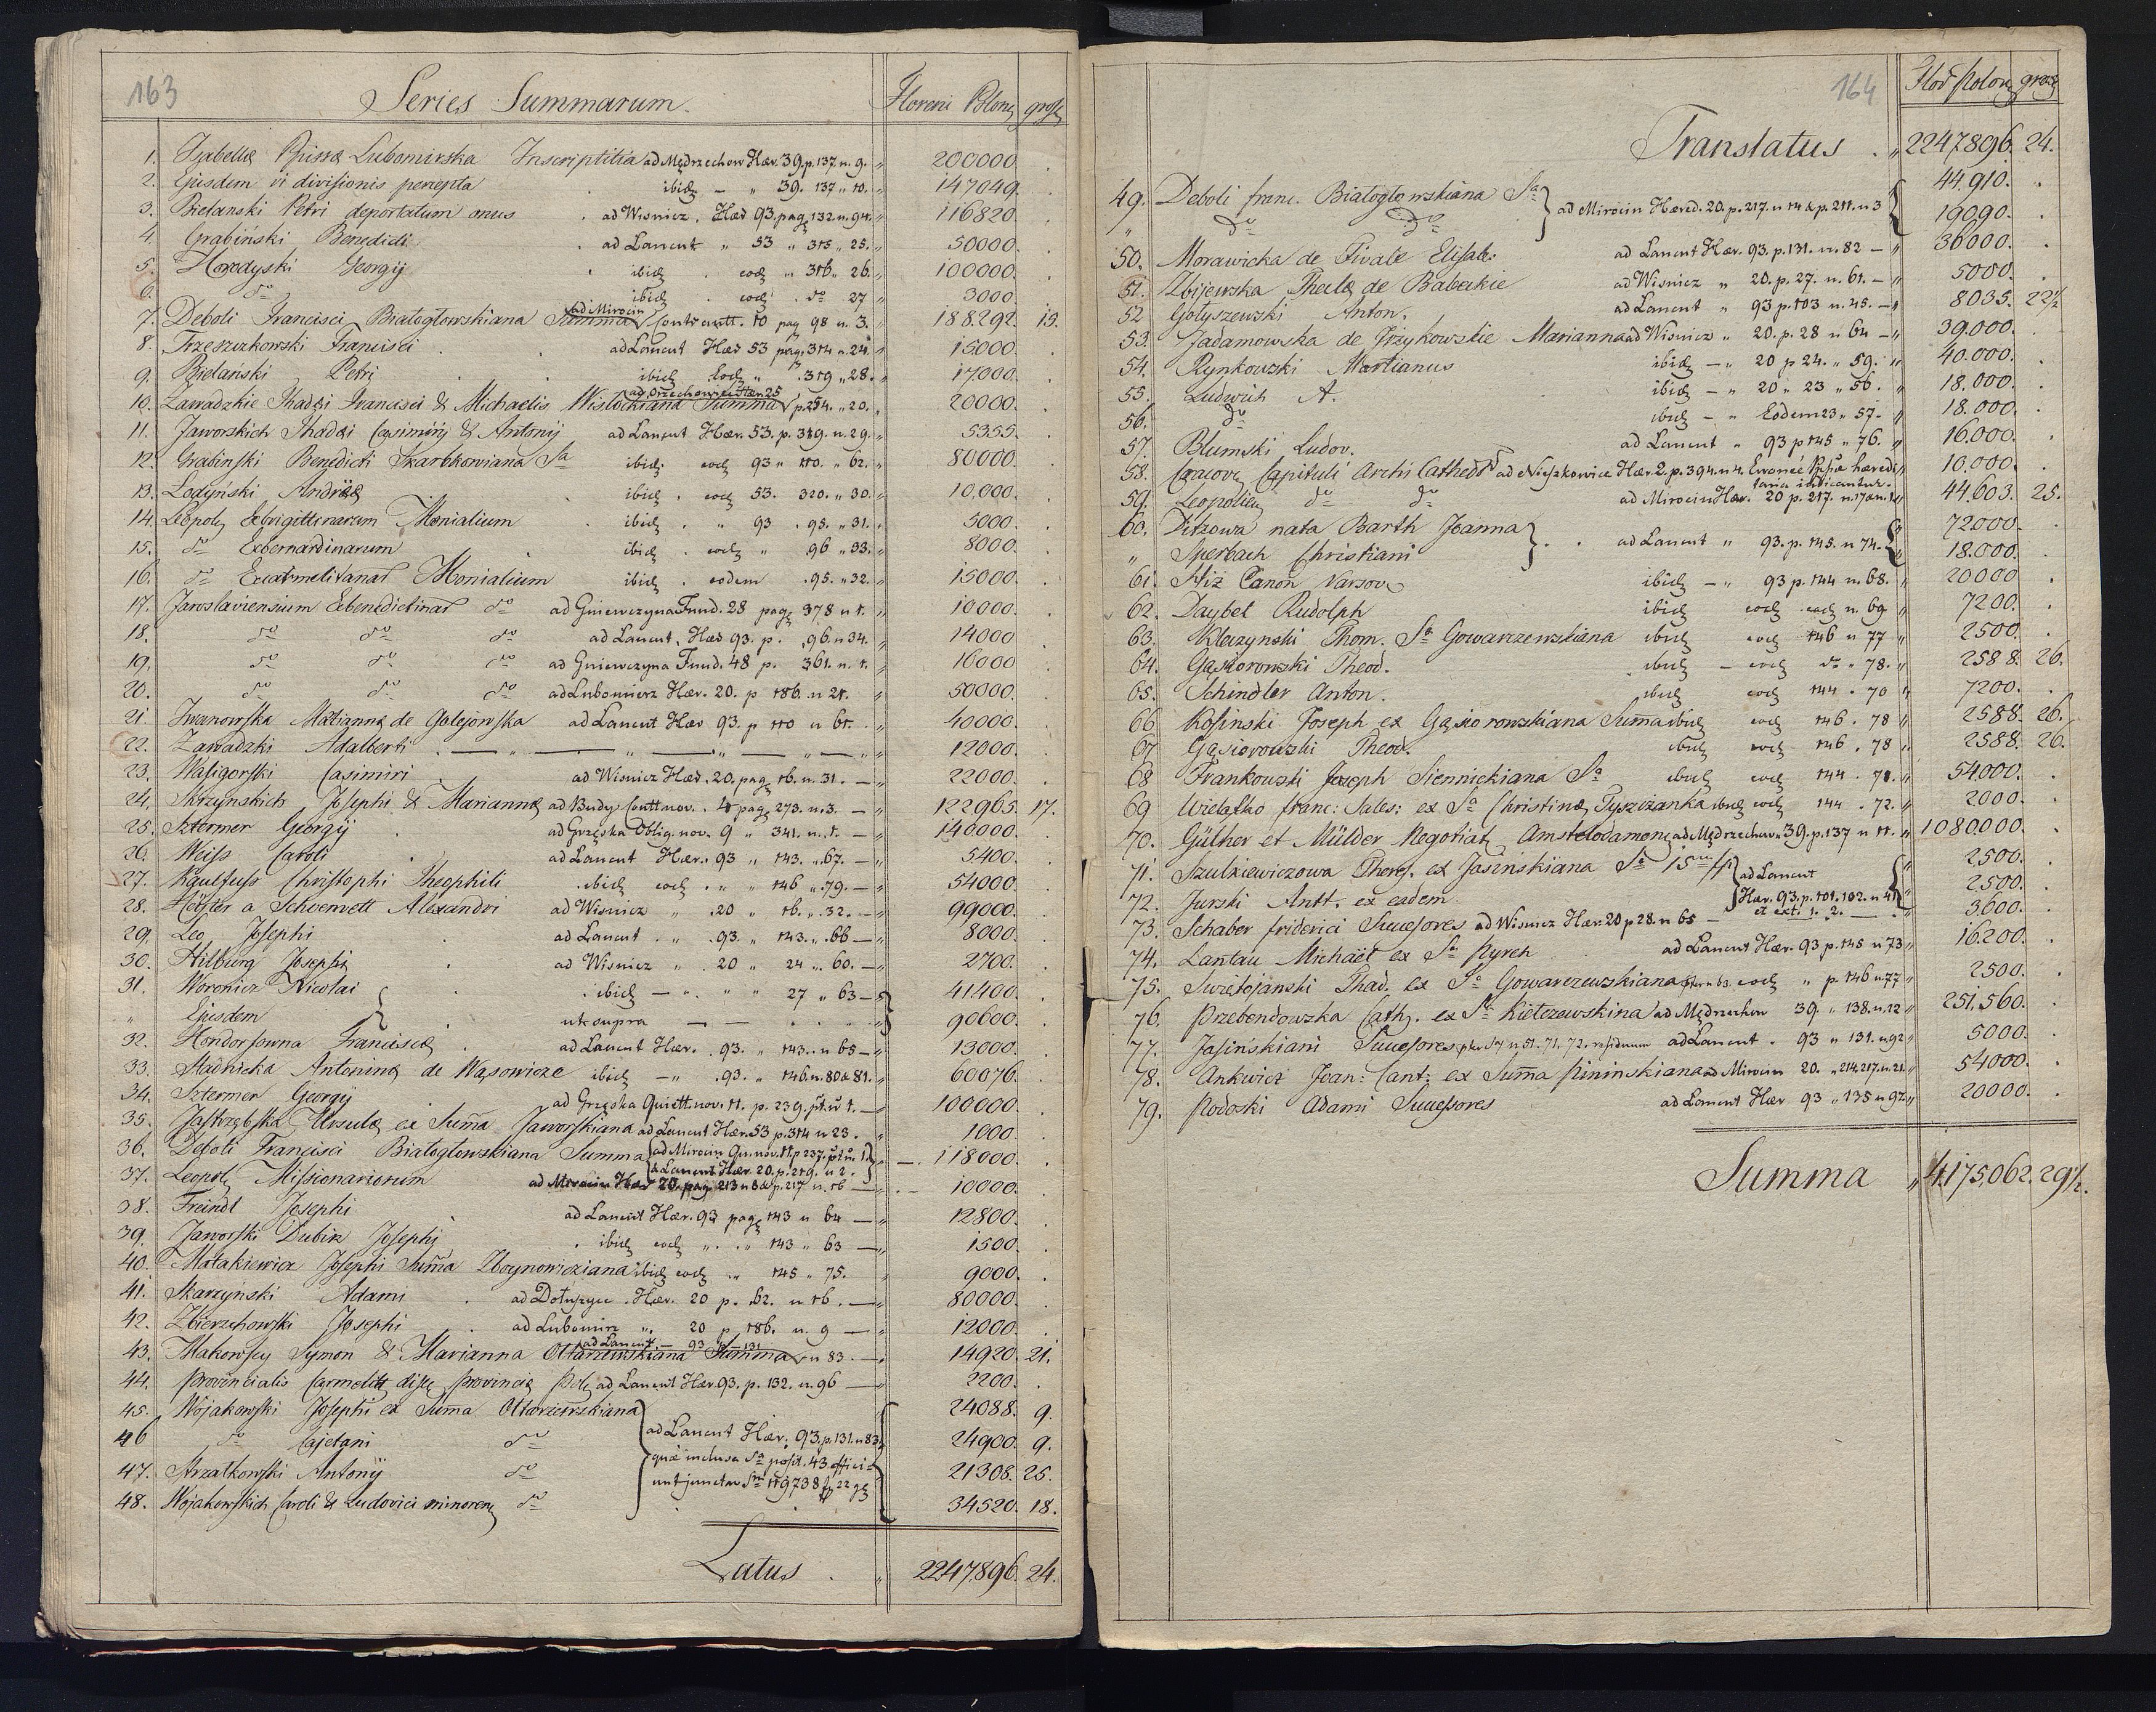 163
Series Summarum. Floreni Polon gross
1. Isabellæ Ppissæ Lubomirska Inscriptitia ad Mędrzechow Hær. 39. p. 137. n. 9. " 200000.
2. Ejusdem vi divisionis percepta ibid — " 39. 137 " 10. " 147049.
3. Bielanski Petri deportatum onus ad Wisnicz. Hær 93. pag 132 n. 94. " 116820.
4. Grabiński Benedicti ad Lancut " 53 " 315 " 25. " 50000.
5. Horodyski Georgij ibid. eod " 316 " 26. " 100000.
6. do ibid. eod. do 27 " 3000.
7. Deboli Francisci Białogłowskiana Summa ad Mirocin Contractt. 10 pag 98 n. 3. 188292. 15.
8. Trzeszczkowski Francisci ad Lancut Hær 53 pag. 314 n. 24. 15000.
9. Bielański Petri ibid. Eod " 319 " 28. 17000.
10. Zawadzkie Thadæi Francisci & Michaelis Wisłockiana Summa ad Orzechowice Hær 25 p. 254. " 20. 20000.
11. Jaworskich Thadæi Casimirij & Antonij ad Lancut Hær. 53. p. 319. n. 29. 5355.
12. Grabinski Benedicti Skarbkowiana Sa ibid. eod 93 " 110. " 62. 80000.
13. Lodyński Andreæ ibid. eod 53. 320. " 30. 10,000.
14. Leopol Exbrigittinarum Monialium ibid. " 93. 95. " 31. 5000.
15. do Exbernardinarum ibid. eod " 96 " 33. 8000.
16. do Excarmelitanar Monialium ibid. eodem. 95. " 32. 15000.
17. Jaroslaviensium Exbenedictinar do ad Gniewczyna Fund. 28 pag 378 n 1. 10000.
18. do do do ad Lancut. Hær 93. p. 96. n 34. 14000
19. do do do ad Gniewczyna Fund. 48 p. 361. n. 1. 16000
20. do do do ad Lubomierz Hær. 20. p 186. n 21. 50000.
21. Iwanowska Mariannæ de Golejowska ad Lancut Hær 93. p 110 n 61. 40000.
22. Zawadzki Adalberti — " — " — " — " 12000.
23. Waligorski Casimiri ad Wisnicz Hær. 20. pag 16. n. 31. — 22000.
24. Skrzynskich Josephi & Mariannæ ad Budy Conttnov. 4 pag 273. n. 3. — 122965. 17.
25. Sztermer Georgij ad Grzęska Oblig. nov. 9 " 341. n. 1. — 140000.
26. Weiss Caroli ad Lancut Hær. 93 " 143. " 67. — 5400.
27. Kaulfuss Christophi Theophili ibid eod. " " 146 " 79. — 54000.
28. a Schvemett Alexandri ad Wisnicz " 20 " 16. " 32. — 99000.
29. Leo Josephi ad Lancut. " 93. " 143. " 66 — 8000.
30. Hilburg Josephi ad Wisnicz " 20 " 24 " 60. — 2700.
31. Woronicz Nicolai ibid — " " " 27 " 63 — 41400.
" Ejusdem ut supra — — 90600.
32. Hondorfowna Franciscæ ad Lancut Hær. 93. " 143. " n 65 — 13000.
33. Stadnicka Antoninæ de Wąsowicze ibid — " 93. " 146. n. 80 & 81. — 60076.
34. Sztermer Georgij ad Grzęska Quiett. nov. 11. p. 239. n 1. — 100000.
35. Jastrzębska Ursulæ ex Suma Jaworskiana ad Lancut Hær. 53 p. 314 n 23. 1000
36. Deboli Francisci Białogłowskiana Summa ad Mirocin Qu. nov. 11. p 237. 1. & Lancut Hær. 20. p. 219. n 2. — 118000.
37. Leopol Missionariorum ad Mirocin Hær 20. pag. 213 n 8 & p. 217 n. 16 — 10000.
38. Freindl Josephi ad Lancut Hær. 93 pag 143 n 64 — 12800.
39. Jaworski Dubin Josephi ibid eod " " 143 " 63 — 1500.
40. Małakiewicz Josephi Suma Zboynowicziana ibid eod " 145 " 75. 9000.
41. Skarzyński Adami ad Dołuszyce. Hær. 20 p. 62. n 16. — 80000.
42. Zbierzchowski Josephi ad Lubomirz ". 20 p 186. n. 9 — 12000.
43. Makowscy Symon & Marianna Ottarzewskiana Summa ad Lancut — 93 p. 131 n 83. — 14920. 21.
44. Provincialis Carmelitt disc Provinciæ Pol ad Lancut Hær. 93. p. 132. n. 96 — 2200.
45. Wojakowski Josephi ex Suma Ottarzewskiana 24088. 9.
46 do Cajetani do ad Lancut Hær: 93. p. 131. n 83. 24900. 9.
47. Strzałkowski Antonij do quæ inclusa Sa posit. 43 effici- 21308. 25.
48. Wojakowskich Caroli & Ludovici minoren do unt junctim Sm 119738 fp 22 g 34520. 18.
Latus. " 2247,896. 24.
164
Flor Polon gross
Translatus. " 2247,896. 24.
49. Deboli franc. Białogłowskiana Sa ad Mirocin Hæred. 20. p. 217. n 14 & p. 211. n 3 44,910.
" do do 19090.
50. Morawicka de Fivale Elisab: ad Lancut Hær. 93. p. 131. n. 82 — 36000.
51. Zbijewska Theclæ de Babeckie ad Wisnicz " 20. p. 27. n. 61. — 5000.
52 Gołyszewski Anton. ad Lancut " 93 p 103 n. 45. — 8035. 22½
53. Jadamowska de Grzykowskie Marianna ad Wisnicz " 20. p. 28 n 64 — 39.000.
54. Rynkowski Martianus ibid — " 20 p 24. " 59. 40.000.
55. Ludwich A. ibid — " 20 " 23 " 56. 18.000.
56. do ibid — " Eodem 23 " 57. 18.000.
57. Blumski Ludov. ad Lancut " 93 p 145 " 76. 16.000.
58. Cracov Capituli Archi Cathedr ad Nieszkowice Hær. 2. p. 394. n 4. hæredi 10,000.
tario indicantur.
59. Leopolien do do ad Mirocin Hær. 20 p. 217. n. 17 44,603. 25.
60. Vitzowa nata Barth Joanna ad Lancut " 93. p. 145. n 74. 72000.
" Sperbach Christiani 18.000.
61. Hiz Canon Varsov ibid — " 93 p. 144 n. 68. 20000
62. Daybel Rudolph ibid eod eod n. 69 7200.
63. Kleczynski Thom. Sa Gowarzewskiana ibid eod 146 n 77 2500.
64. Gąsiorowski Theod. ibid — eod do " 78. 2588. 26.
65. Schindler Anton. ibid eod 144. 70 7200.
66 Kosinski Joseph ex Gąsiorowskiana Suma ibid eod 146. 78 2588. 26.
67 Gąsiorowski Theod. ibid eod 146. 78 2588. 26.
68 Frankowski Joseph Siennickiana Sa ibid eod 144. 71. 54000.
69 Wielatko franc: Sales: ex Sa Christinæ Tyszizanka ibid eod 144. 72. 2000.
70. Gülher et Mülder Negotiat Amstelodamen ad Mędrzechow 39. p. 137 n 11. 1080,000.
71. Szulkiewiczowa Theres. ex Jasinskiana Sa 15 ad Lancut 2500.
72. Jurski Antt. ex eadem Hær. 93. p. 101. 102. n 41 2,500.
73. Schaber friderici Successores ad Wisnicz Hær. 20 p 28. n 65 — et ext. 1. 2. — 3,600.
74. Lantau Michael ex Sa Pyrch ad Lancut Hær. 93 p. 145 n 73 16.200.
75. Swiętojanski Thad. ex Sa Gowarzewskiana eod " p. 146 n. 77 2500.
76. Przebendowska Cath. ex Sa Kietczewskina ad Mędrzechow 39. " 138. n. 12 251,560.
77. Jasińskiani Successores n 51. 71. 72. residuum ad Lancut. 93 " 131. n 92 5000.
78. Ankwicz Joan: Cant: ex Suma Pininskiana ad Mirocin 20. " 214. 217. n. 21 54000.
79. Rodoski Adami Successores ad Lancut Hær 93 " 135 n 97 20000.
Summa " 4,175,062. 29½.